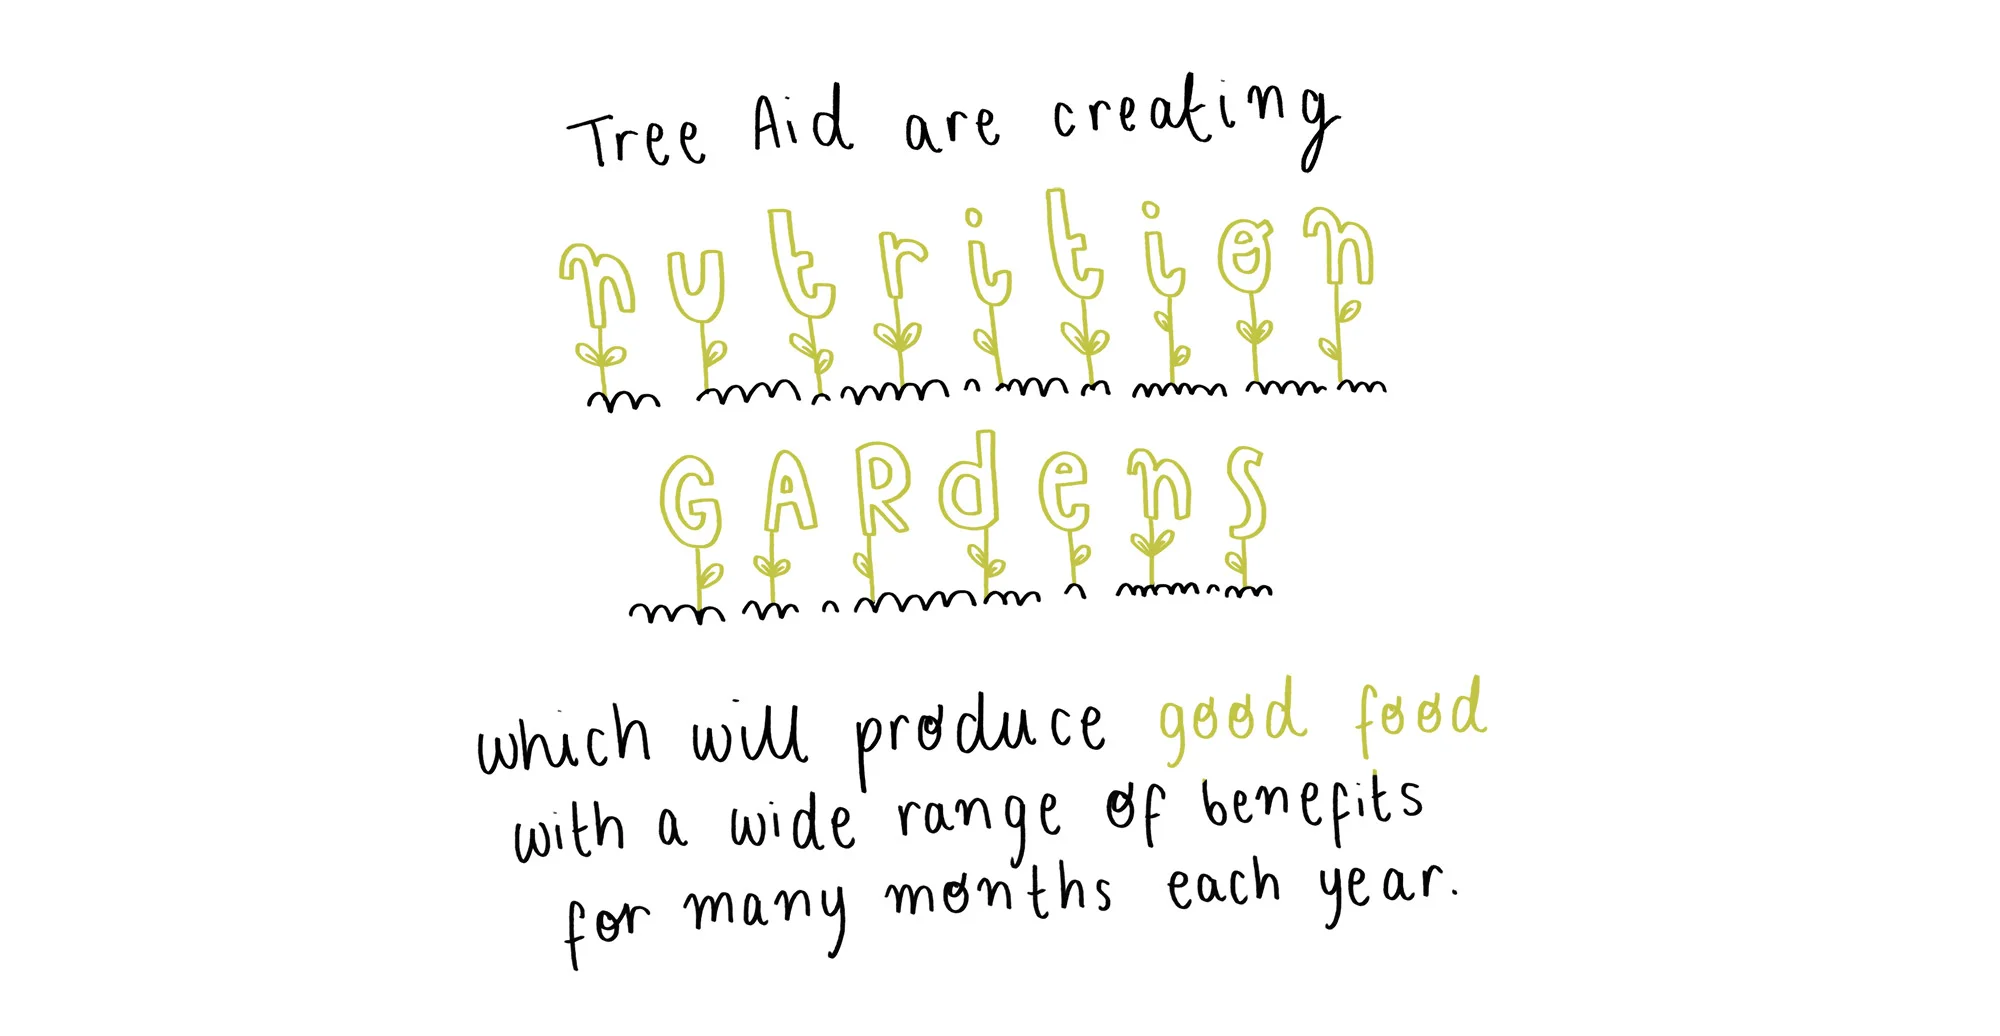 Tree Aid are creating
nutrition
GARdens
which will produce good food
with a wide range of benefits
for many months each year.